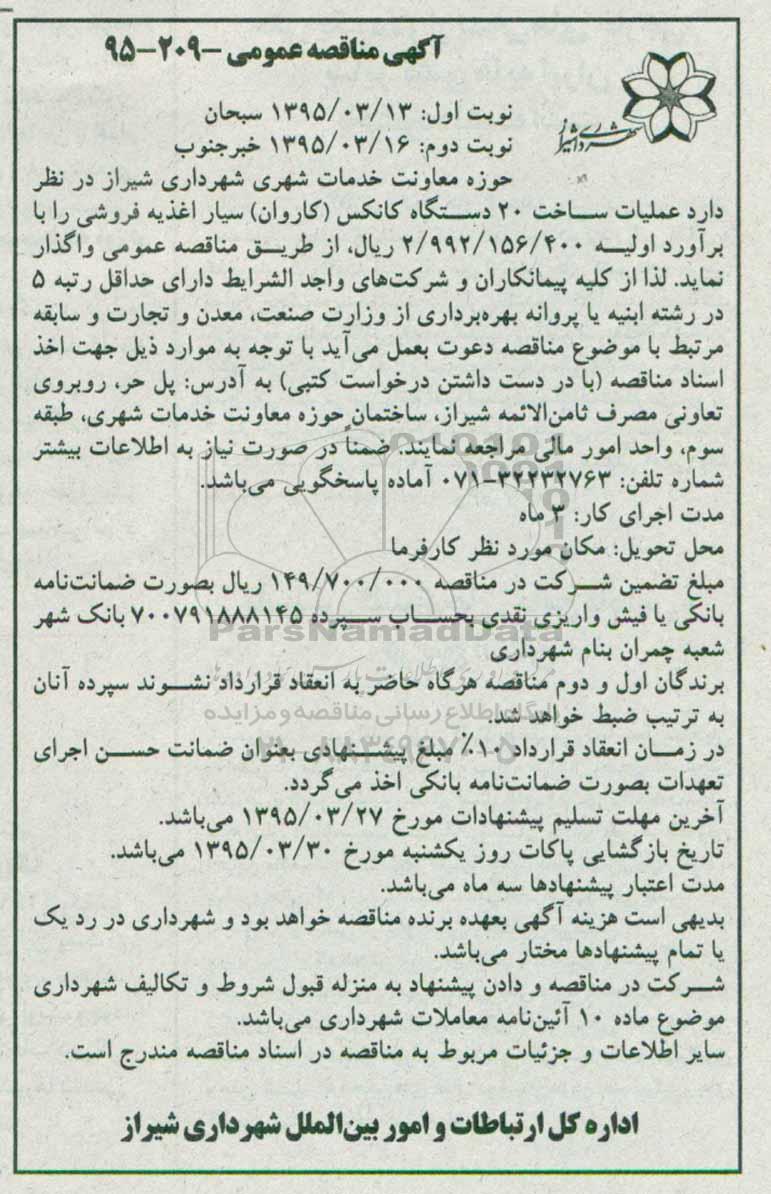 آگهی مناقصه عمومی -۲۰۹-۹۵
شهرداری شیراز
نوبت اول: ۱۳۹۵/۰۳/۱۳ سبحان
نوبت دوم: ۱۳۹۵/۰۳/۱۶ خبرجنوب
حوزه معاونت خدمات شهری شهرداری شیراز در نظر
دارد عملیات ساخت ۲۰ دستگاه کانکس (کاروان) سیار اغذیه فروشی را با
برآورد اولیه ۲/۹۹۲/۱۵۶/۴۰۰ ریال، از طریق مناقصه عمومی واگذار
نماید. لذا از کلیه پیمانکاران و شرکت‌های واجد الشرایط دارای حداقل رتبه ۵
در رشته ابنیه یا پروانه بهره‌برداری از وزارت صنعت، معدن و تجارت و سابقه
مرتبط با موضوع مناقصه دعوت بعمل می‌آید با توجه به موارد ذیل جهت اخذ
اسناد مناقصه (با در دست داشتن درخواست کتبی) به آدرس: پل حر، روبروی
تعاونی مصرف ثامن‌الائمه شیراز، ساختمان حوزه معاونت خدمات شهری، طبقه
سوم، واحد امور مالی مراجعه نمایند. ضمناً در صورت نیاز به اطلاعات بیشتر
شماره تلفن: ۳۲۲۳۲۷۶۳-۰۷۱ آماده پاسخگویی می‌باشد.
مدت اجرای کار: ۳ ماه
محل تحویل: مکان مورد نظر کارفرما
مبلغ تضمین شرکت در مناقصه ۱۴۹/۷۰۰/۰۰۰ ریال بصورت ضمانت‌نامه
بانکی یا فیش واریزی نقدی بحساب سپرده ۷۰۰۷۹۱۸۸۸۱۴۵ بانک شهر
ParsNamadData
شعبه چمران بنام شهرداری
برندگان اول و دوم مناقصه هرگاه حاضر به انعقاد قرارداد نشوند سپرده آنان
پایگاه اطلاع رسانی مناقصه و مزایده
به ترتیب ضبط خواهد شد.
در زمان انعقاد قرارداد ۱۰٪ مبلغ پیشنهادی بعنوان ضمانت حسن اجرای
تعهدات بصورت ضمانت‌نامه بانکی اخذ می‌گردد.
آخرین مهلت تسلیم پیشنهادات مورخ ۱۳۹۵/۰۳/۲۷ می‌باشد.
تاریخ بازگشایی پاکات روز یکشنبه مورخ ۱۳۹۵/۰۳/۳۰ می‌باشد.
مدت اعتبار پیشنهادها سه ماه می‌باشد.
بدیهی است هزینه آگهی بعهده برنده مناقصه خواهد بود و شهرداری در رد یک
یا تمام پیشنهادها مختار می‌باشد.
شرکت در مناقصه و دادن پیشنهاد به منزله قبول شروط و تکالیف شهرداری
موضوع ماده ۱۰ آئین‌نامه معاملات شهرداری می‌باشد.
سایر اطلاعات و جزئیات مربوط به مناقصه در اسناد مناقصه مندرج است.
اداره کل ارتباطات و امور بین‌الملل شهرداری شیراز